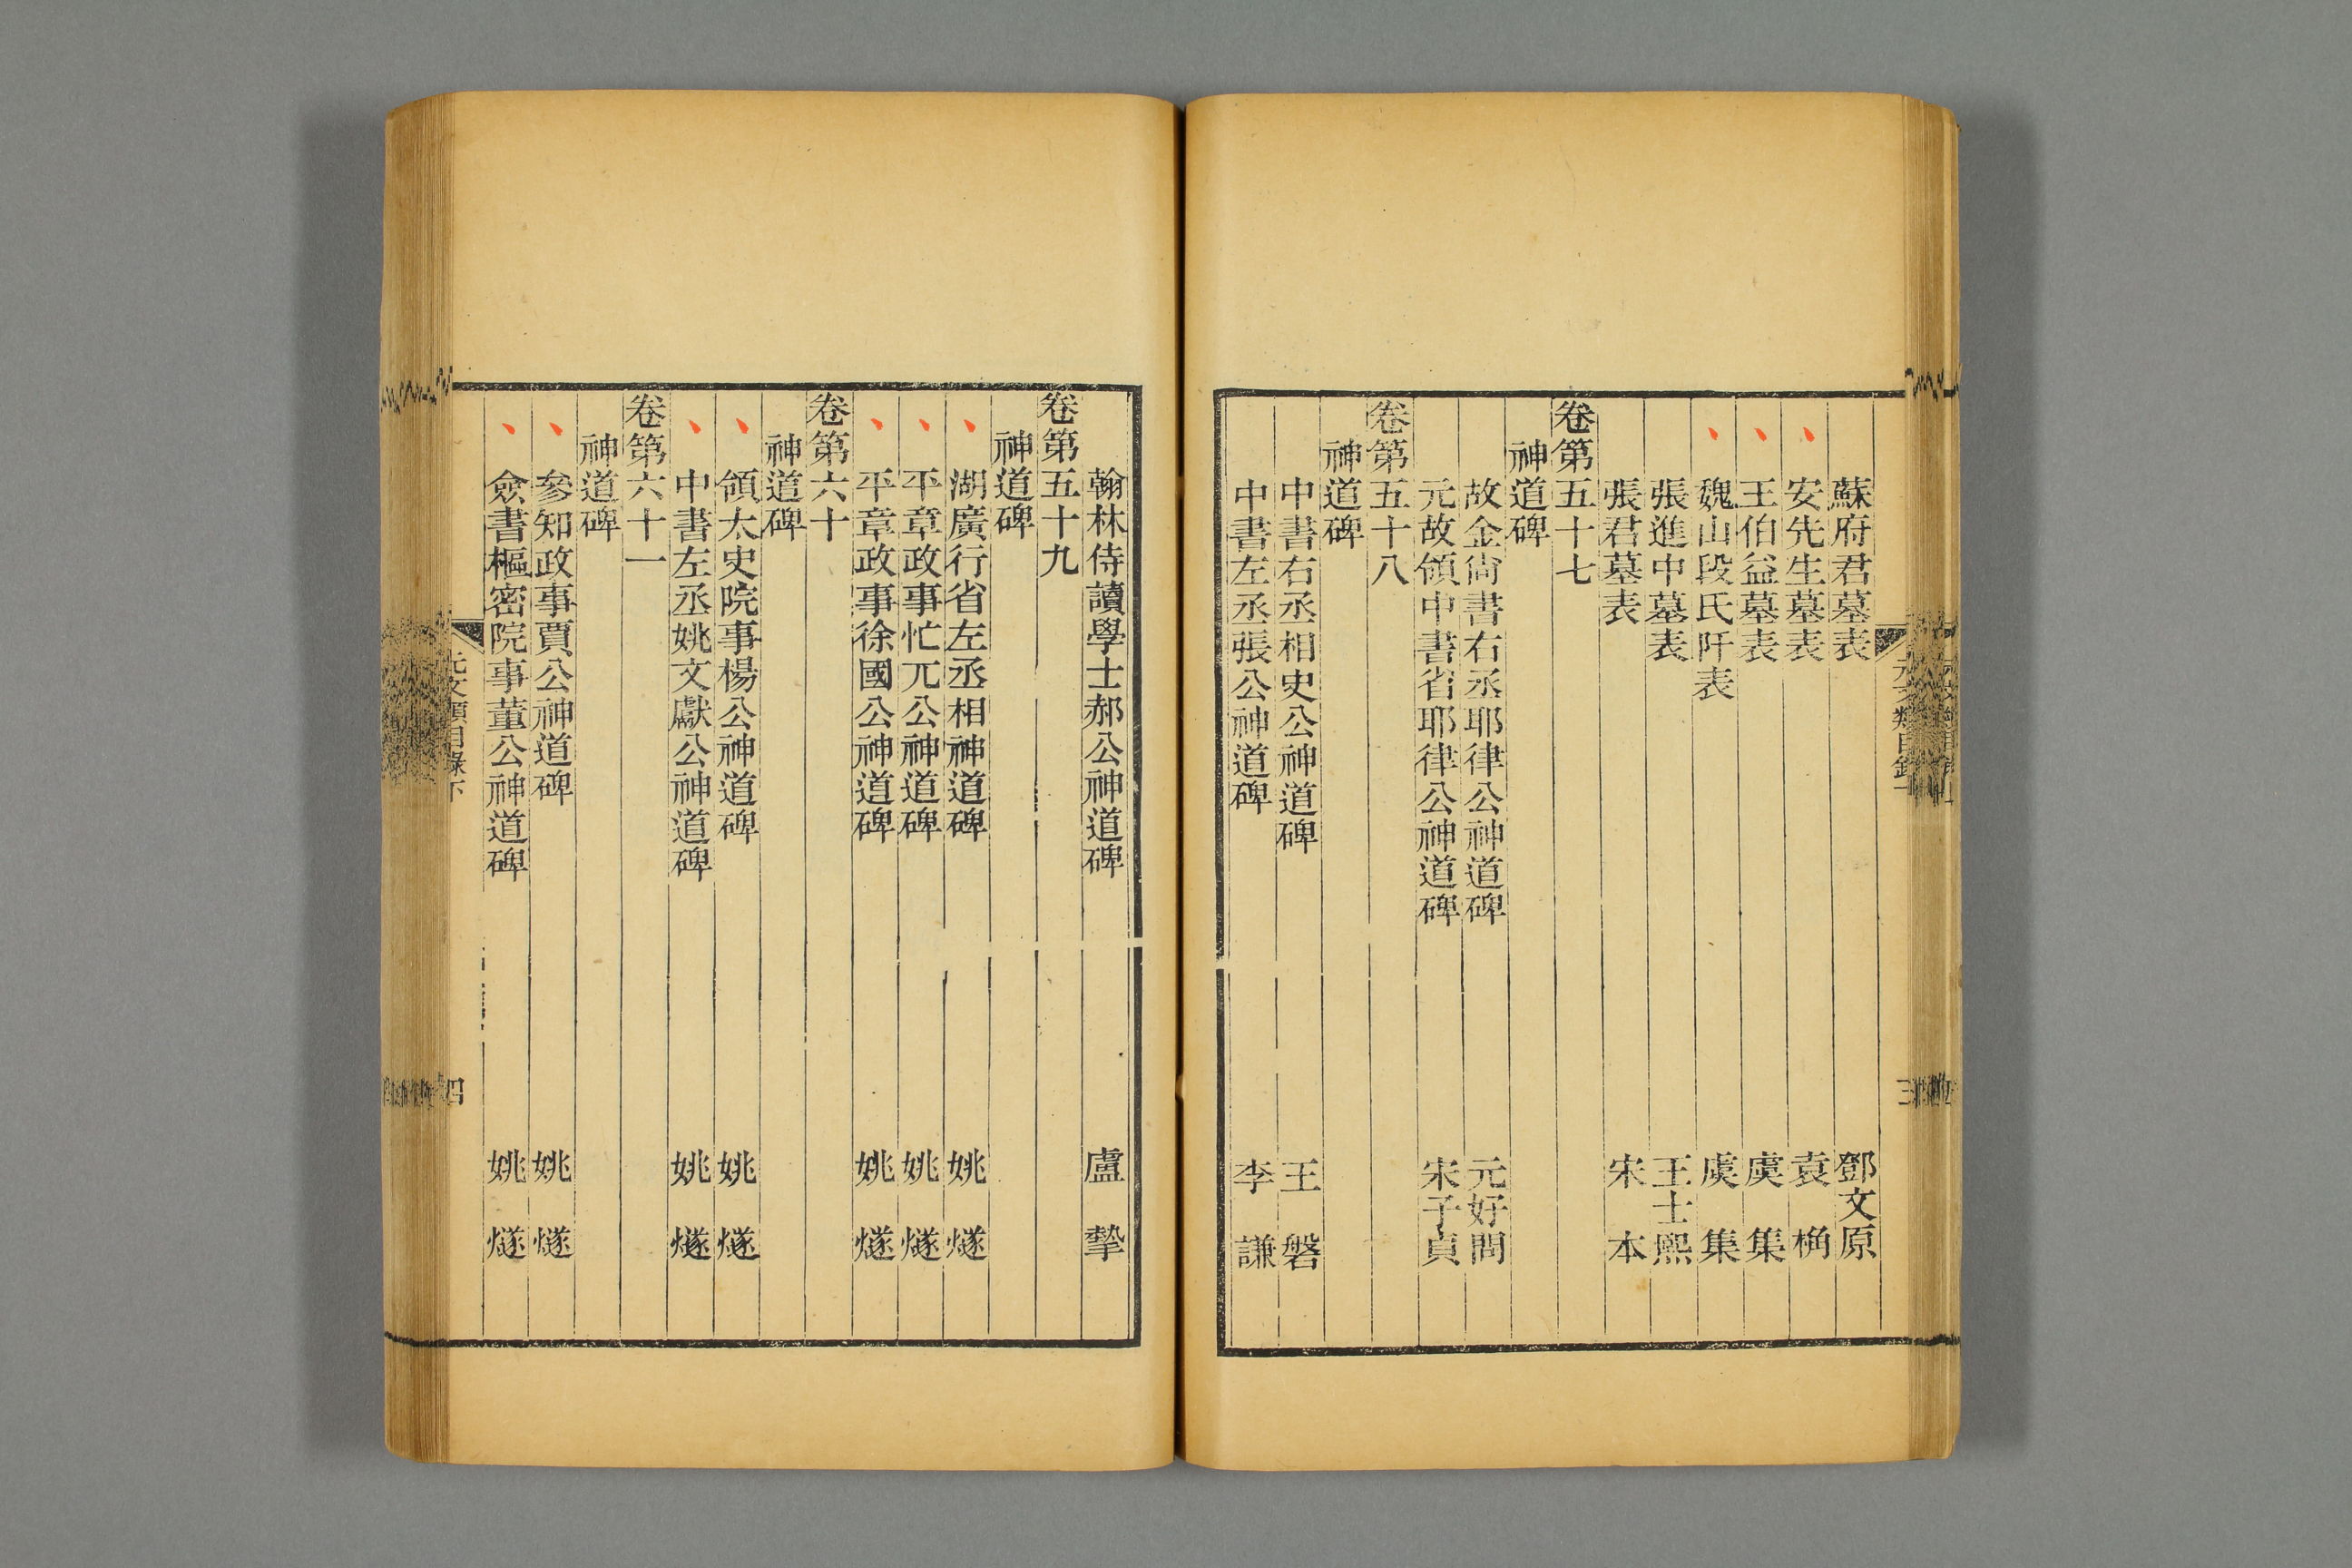 蘇府君墓表 鄧文原
安先生墓表 袁桷
王伯益墓表 虞集
魏山段氏阡表 虞集
張進中墓表 王士熙
張君墓表 宋本
卷第五十七
神道碑
故金尚書右丞耶律公神道碑 元好問
元故領中書省耶律公神道碑 宋子貞
卷第五十八
神道碑
中書右丞相史公神道碑 王磐
中書左丞張公神道碑 李謙
翰林侍讀學士郝公神道碑 盧摯
卷第五十九
神道碑
湖廣行省左丞相神道碑 姚燧
平章政事忙兀公神道碑 姚燧
平章政事徐國公神道碑 姚燧
卷第六十
神道碑
領太史院事楊公神道碑 姚燧
中書左丞姚文獻公神道碑 姚燧
卷第六十一
神道碑
參知政事賈公神道碑 姚燧
僉書樞密院事董公神道碑 姚燧
元文類目錄下
四